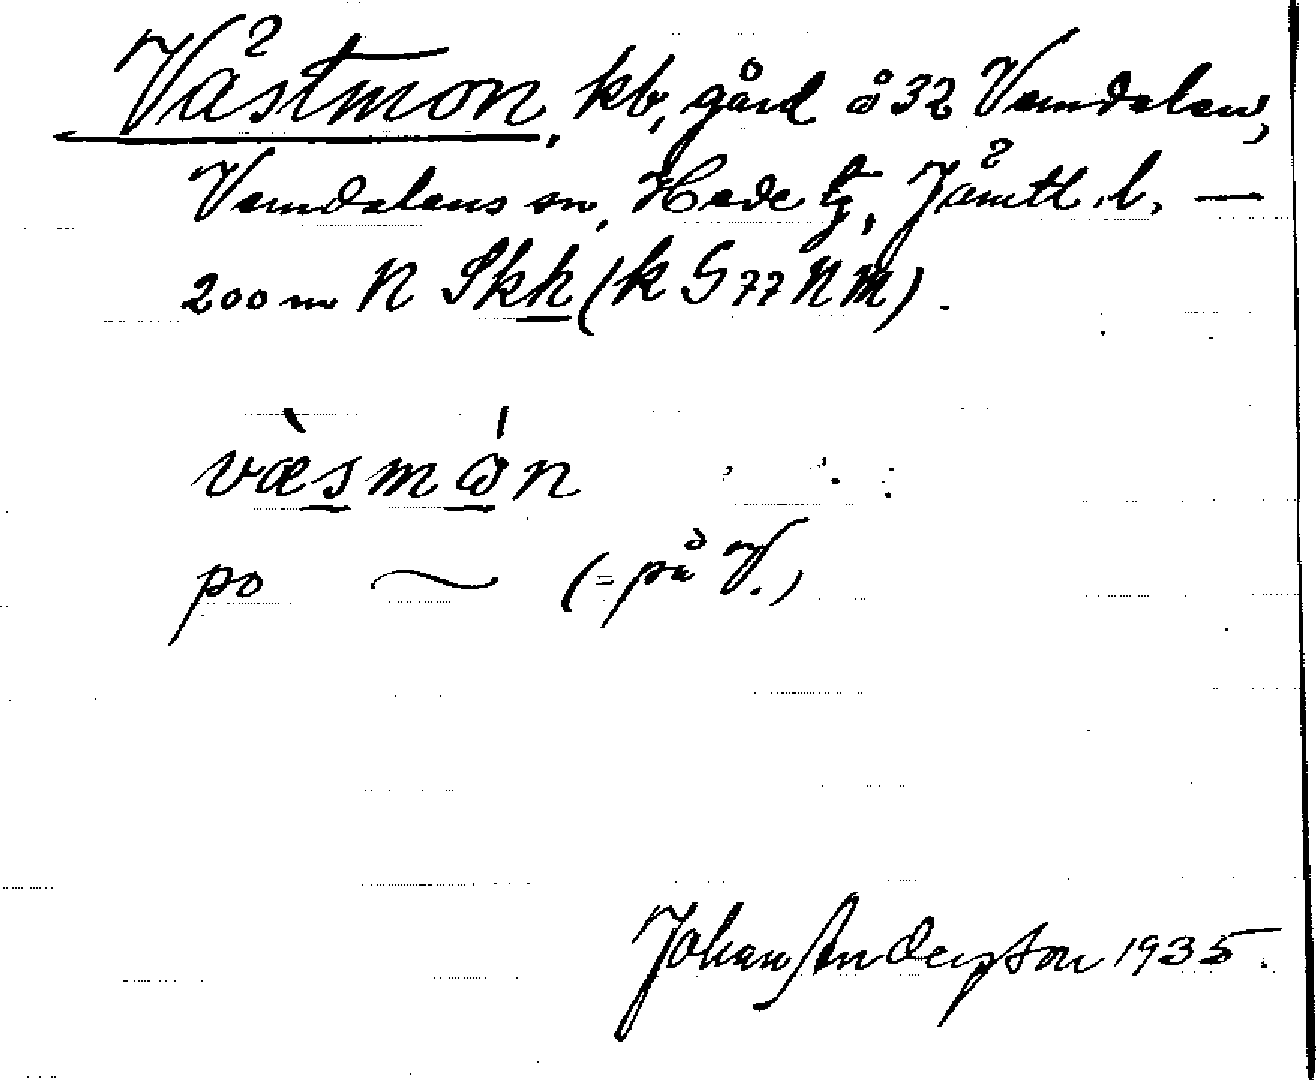 Västmon, kb, gård å 32 Vemdalen,
Vemdalens sn, Hede tg, Jämtl. l. —
200 m N Skh (k S 77 N M).
vàsmán
po ~ (= på V.)
Johan Anderſson 1935.